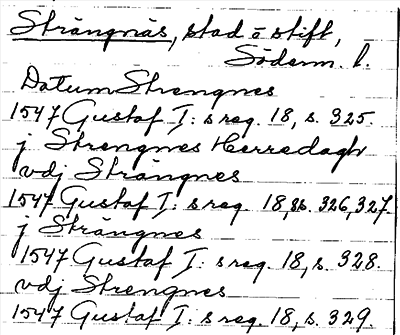 Strängnäs, stad o stift,
Söderm. l.
Datum Strengnes
1547 Gustaf I: s reg. 18, s. 325.
j Strengnes Herredagh
vdj Strängnes
1547 Gustaf I: s reg. 18, ss. 326, 327.
j Strängnes
1547 Gustaf I: s reg. 18, s. 328.
vdj Strengnes
1547 Gustaf I: s reg. 18, s. 329.